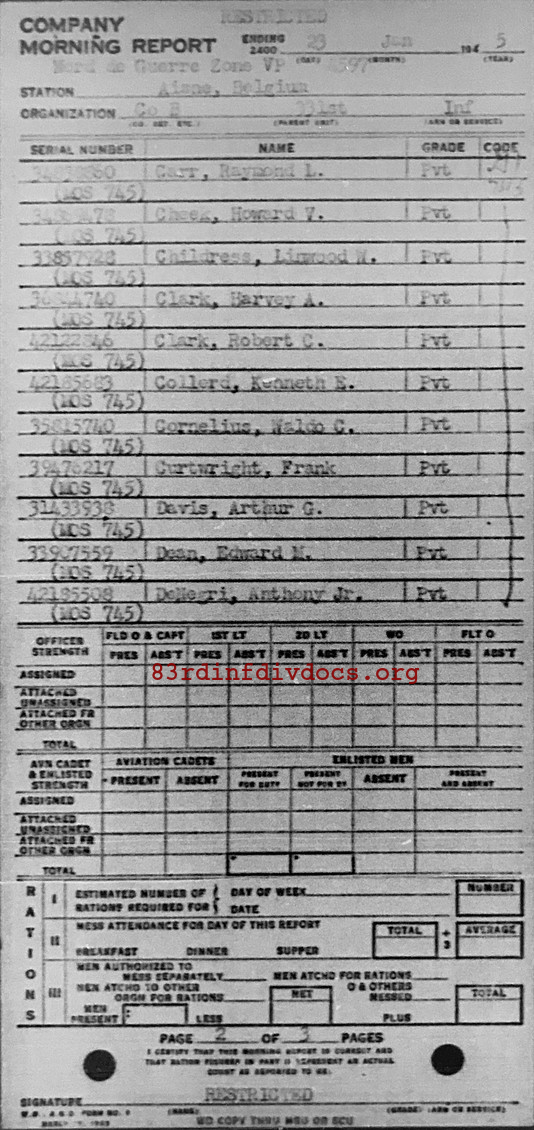 RESTRICTED
COMPANY
MORNING REPORT ENDING 2400 23 Jan 194 5
(DAY) (MONTH) (YEAR)
Nord de Guerre Zone VP 4597
STATION Aisne, Belgium
ORGANIZATION Co E 331st Inf
(CO. DET. ETC.) (PARENT UNIT) (ARM OR SERVICE)
SERIAL NUMBER NAME GRADE CODE
Garr, Raymond L. Pvt
(MOS 745)
Cheek, Howard V. Pvt
(MOS 745)
33857928 Childress, Linwood W. Pvt
(MOS 745)
36844740 Clark, Harvey A. Pvt
(MOS 745)
42122846 Clark, Robert C. Pvt
(MOS 745)
42185683 Collerd, Kenneth E. Pvt
(MOS 745)
35815740 Cornelius, Waldo C. Pvt
(MOS 745)
39476217 Curtwright, Frank Pvt
(MOS 745)
31433938 Davis, Arthur G. Pvt
(MOS 745)
33907559 Dean, Edward M. Pvt
(MOS 745)
42185508 DeNegri, Anthony Jr. Pvt
(MOS 745)
OFFICER STRENGTH FLD O & CAPT 1ST LT 2D LT WO FLT O
PRES ABS'T PRES ABS'T PRES ABS'T PRES ABS'T PRES ABS'T
ASSIGNED
83rdinfdivdocs.org
ATTACHED UNASSIGNED
ATTACHED FR OTHER ORGN
TOTAL
AVN CADET & ENLISTED STRENGTH AVIATION CADETS ENLISTED MEN
PRESENT ABSENT PRESENT FOR DUTY PRESENT NOT FOR DY ABSENT PRESENT AND ABSENT
ASSIGNED
ATTACHED UNASSIGNED
ATTACHED FR OTHER ORGN
TOTAL
RATIONS
I ESTIMATED NUMBER OF RATIONS REQUIRED FOR { DAY OF WEEK DATE NUMBER
II MESS ATTENDANCE FOR DAY OF THIS REPORT TOTAL ÷ 3 AVERAGE
BREAKFAST DINNER SUPPER
III MEN AUTHORIZED TO MESS SEPARATELY MEN ATCHD FOR RATIONS
MEN ATCHD TO OTHER ORGN FOR RATIONS NET O & OTHERS MESSED TOTAL
MEN PRESENT LESS PLUS
PAGE 2 OF 3 PAGES
I CERTIFY THAT THIS MORNING REPORT IS CORRECT AND
THAT RATION FIGURES IN PART II REPRESENT AN ACTUAL
COUNT AS REPORTED TO ME.
RESTRICTED
SIGNATURE
(NAME) (GRADE) (ARM OR SERVICE)
W.D., A.G.O. FORM NO. 1
WD COPY THRU MRU OR SCU